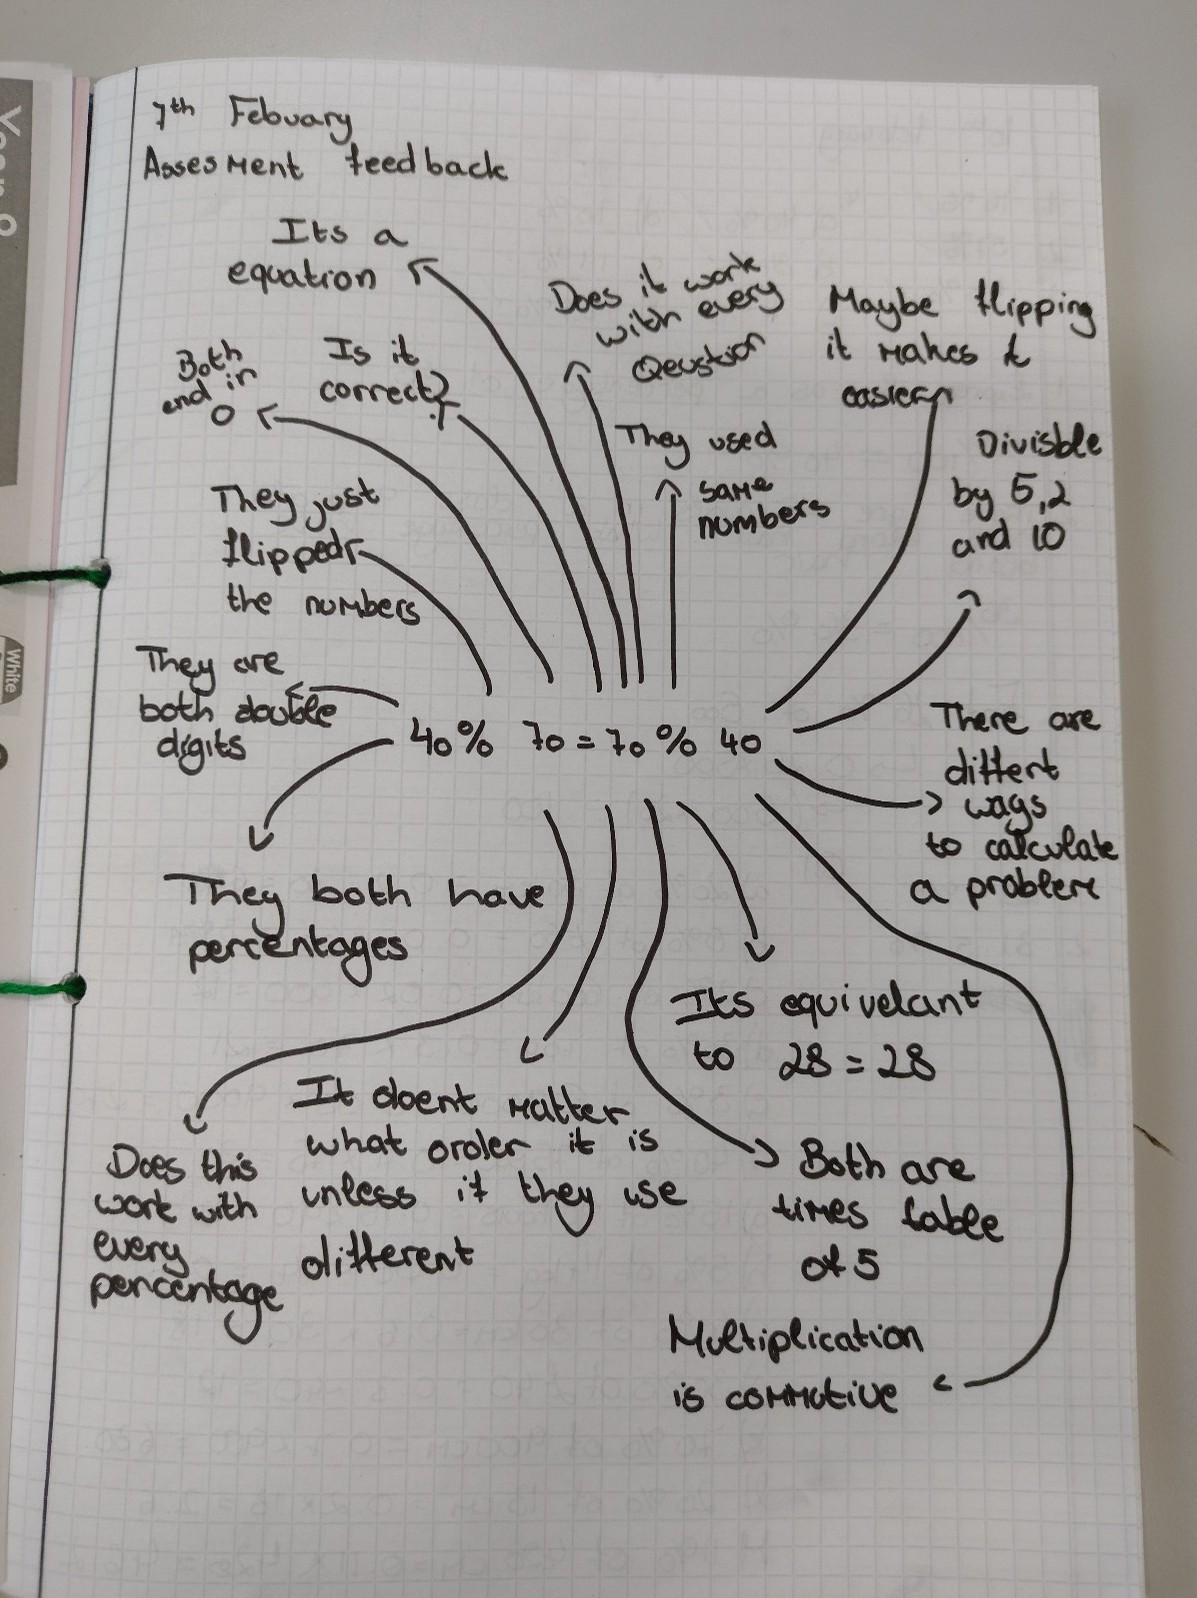 7th Febuary
Assesment feedback
Its a
equation
Does it work
with every
Qeustion
Maybe flipping
it makes it
easier
Both
end in
0
Is it
correct?
They used
same
numbers
Divisble
by 5,2
and 10
They just
flipped
the numbers
They are
both double
digits
40% 70 = 70% 40
There are
differt
ways
to calculate
a problem
They both have
percentages
Its equivelant
to 28 = 28
It doent matter
what order it is
unless if they use
different
Does this
work with
every
percentage
Both are
times table
of 5
Multiplication
is commutive
White